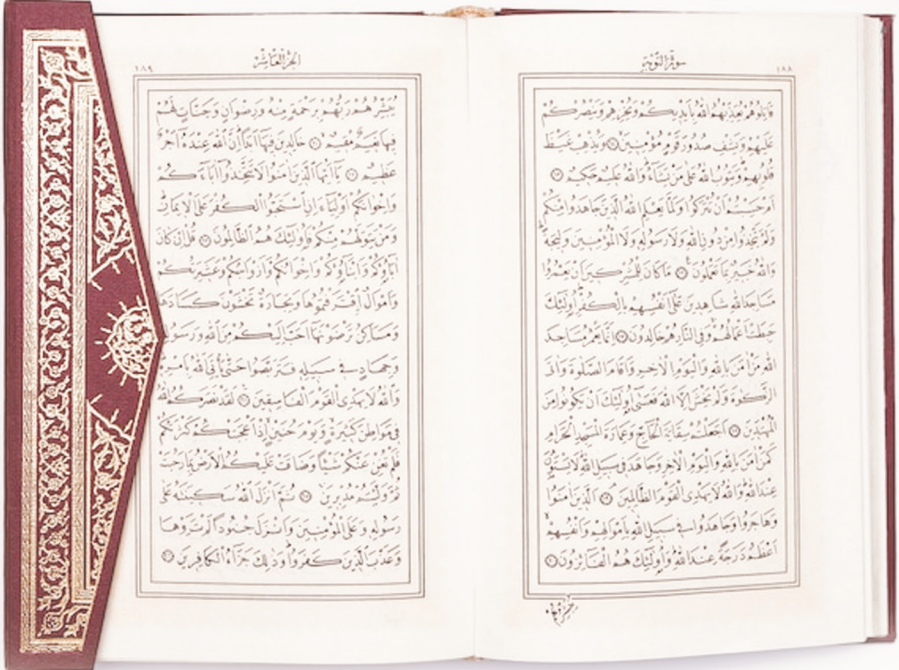 سورة التوبة ١٨٨
قَاتِلُوهُمْ يُعَذِّبْهُمُ اللّٰهُ بِاَيْدِيكُمْ وَيُخْزِهِمْ وَيَنْصُرْكُمْ
عَلَيْهِمْ وَيَشْفِ صُدُورَ قَوْمٍ مُؤْمِنِينَ ۝ وَيُذْهِبْ غَيْظَ
قُلُوبِهِمْ وَيَتُوبُ اللّٰهُ عَلٰى مَنْ يَشَاءُ وَاللّٰهُ عَلِيمٌ حَكِيمٌ ۝
اَمْ حَسِبْتُمْ اَنْ تُتْرَكُوا وَلَمَّا يَعْلَمِ اللّٰهُ الَّذِينَ جَاهَدُوا مِنْكُمْ
وَلَمْ يَتَّخِذُوا مِنْ دُونِ اللّٰهِ وَلَا رَسُولِهِ وَلَا الْمُؤْمِنِينَ وَلِيجَةً
وَاللّٰهُ خَبِيرٌ بِمَا تَعْمَلُونَ ۝ مَا كَانَ لِلْمُشْرِكِينَ اَنْ يَعْمُرُوا
مَسَاجِدَ اللّٰهِ شَاهِدِينَ عَلٰى اَنْفُسِهِمْ بِالْكُفْرِ اُولٰئِكَ
حَبِطَتْ اَعْمَالُهُمْ وَفِي النَّارِ هُمْ خَالِدُونَ ۝ اِنَّمَا يَعْمُرُ مَسَاجِدَ
اللّٰهِ مَنْ اٰمَنَ بِاللّٰهِ وَالْيَوْمِ الْاٰخِرِ وَاَقَامَ الصَّلٰوةَ وَاٰتَى
الزَّكٰوةَ وَلَمْ يَخْشَ اِلَّا اللّٰهَ فَعَسٰى اُولٰئِكَ اَنْ يَكُونُوا مِنَ
الْمُهْتَدِينَ ۝ اَجَعَلْتُمْ سِقَايَةَ الْحَاجِّ وَعِمَارَةَ الْمَسْجِدِ الْحَرَامِ
كَمَنْ اٰمَنَ بِاللّٰهِ وَالْيَوْمِ الْاٰخِرِ وَجَاهَدَ فِي سَبِيلِ اللّٰهِ لَا يَسْتَوُنَ
عِنْدَ اللّٰهِ وَاللّٰهُ لَا يَهْدِي الْقَوْمَ الظَّالِمِينَ ۝ اَلَّذِينَ اٰمَنُوا
وَهَاجَرُوا وَجَاهَدُوا فِي سَبِيلِ اللّٰهِ بِاَمْوَالِهِمْ وَاَنْفُسِهِمْ
اَعْظَمُ دَرَجَةً عِنْدَ اللّٰهِ وَاُولٰئِكَ هُمُ الْفَائِزُونَ ۝
الجزء العاشر ١٨٩
يُبَشِّرُهُمْ رَبُّهُمْ بِرَحْمَةٍ مِنْهُ وَرِضْوَانٍ وَجَنَّاتٍ لَهُمْ
فِيهَا نَعِيمٌ مُقِيمٌ ۝ خَالِدِينَ فِيهَا اَبَدًا اِنَّ اللّٰهَ عِنْدَهُ اَجْرٌ
عَظِيمٌ ۝ يَا اَيُّهَا الَّذِينَ اٰمَنُوا لَا تَتَّخِذُوا اٰبَاءَكُمْ
وَاِخْوَانَكُمْ اَوْلِيَاءَ اِنِ اسْتَحَبُّوا الْكُفْرَ عَلَى الْاِيمَانِ
وَمَنْ يَتَوَلَّهُمْ مِنْكُمْ فَاُولٰئِكَ هُمُ الظَّالِمُونَ ۝ قُلْ اِنْ كَانَ
اٰبَاؤُكُمْ وَاَبْنَاؤُكُمْ وَاِخْوَانُكُمْ وَاَزْوَاجُكُمْ وَعَشِيرَتُكُمْ
وَاَمْوَالٌ اقْتَرَفْتُمُوهَا وَتِجَارَةٌ تَخْشَوْنَ كَسَادَهَا
وَمَسَاكِنُ تَرْضَوْنَهَا اَحَبَّ اِلَيْكُمْ مِنَ اللّٰهِ وَرَسُولِهِ
وَجِهَادٍ فِي سَبِيلِهِ فَتَرَبَّصُوا حَتّٰى يَأْتِيَ اللّٰهُ بِاَمْرِهِ
وَاللّٰهُ لَا يَهْدِي الْقَوْمَ الْفَاسِقِينَ ۝ لَقَدْ نَصَرَكُمُ اللّٰهُ
فِي مَوَاطِنَ كَثِيرَةٍ وَيَوْمَ حُنَيْنٍ اِذْ اَعْجَبَتْكُمْ كَثْرَتُكُمْ
فَلَمْ تُغْنِ عَنْكُمْ شَيْئًا وَضَاقَتْ عَلَيْكُمُ الْاَرْضُ بِمَا رَحُبَتْ
ثُمَّ وَلَّيْتُمْ مُدْبِرِينَ ۝ ثُمَّ اَنْزَلَ اللّٰهُ سَكِينَتَهُ عَلٰى
رَسُولِهِ وَعَلَى الْمُؤْمِنِينَ وَاَنْزَلَ جُنُودًا لَمْ تَرَوْهَا
وَعَذَّبَ الَّذِينَ كَفَرُوا وَذٰلِكَ جَزَاءُ الْكَافِرِينَ ۝